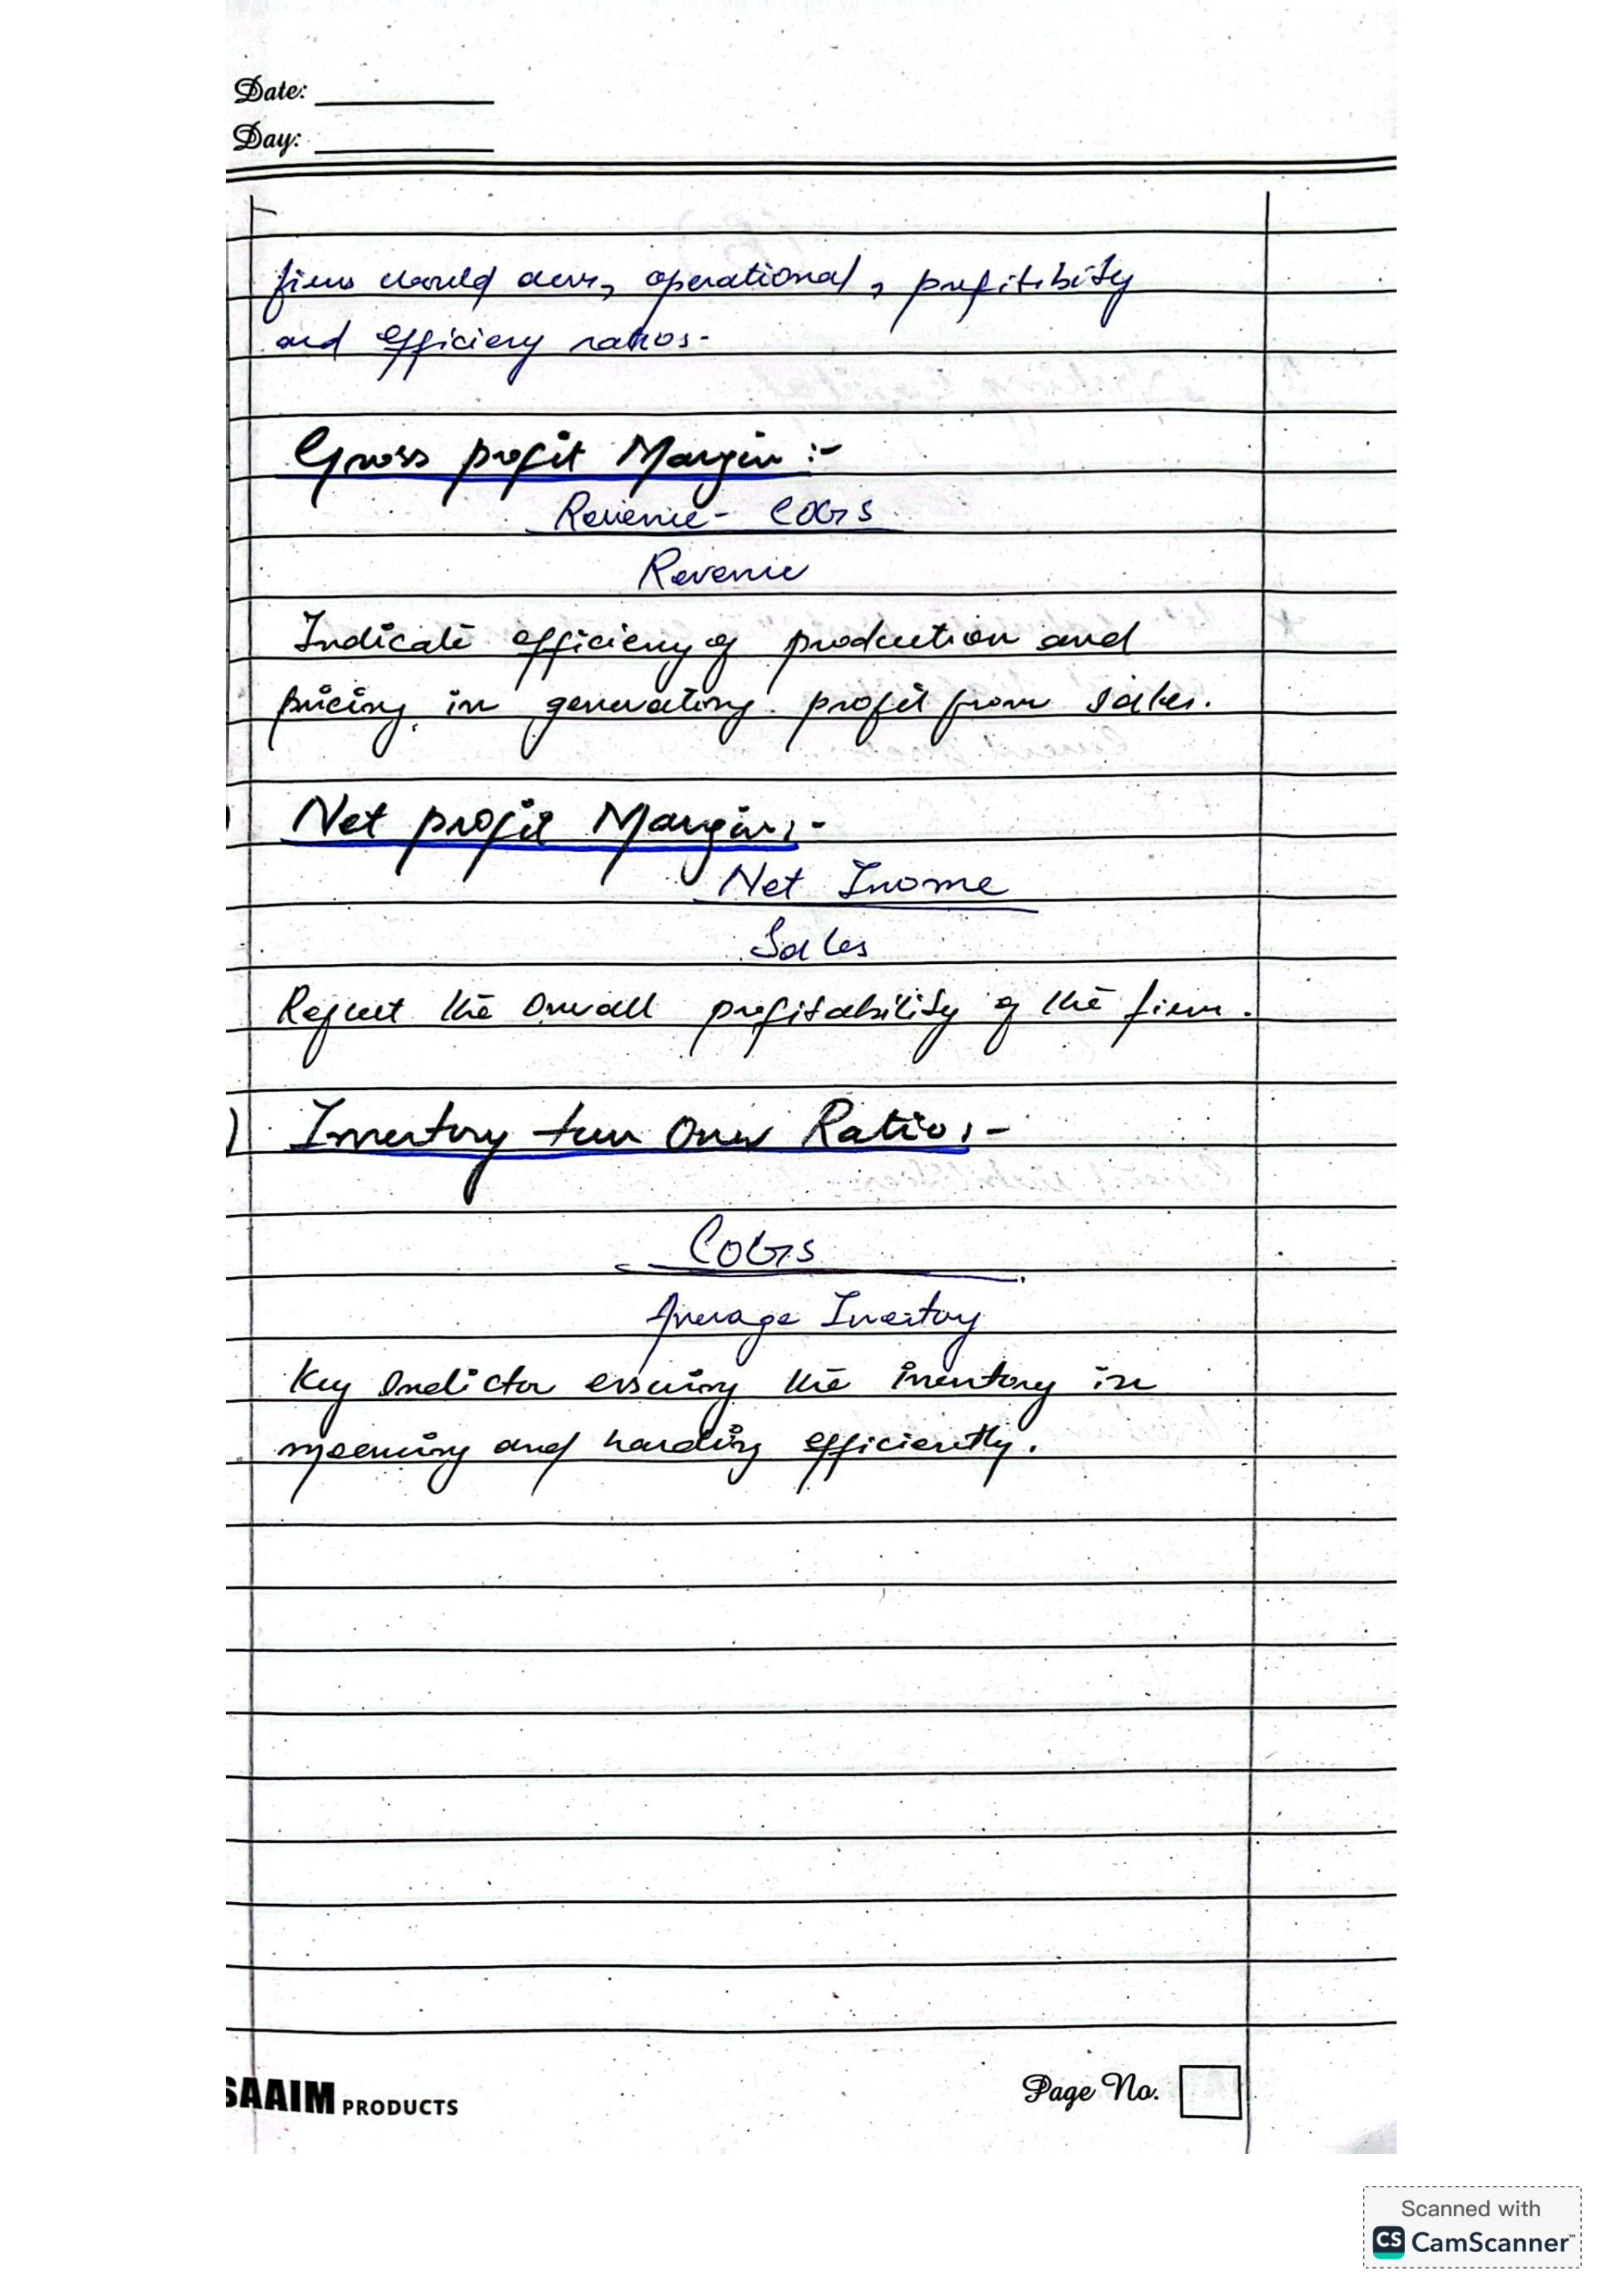 Date:
Day:
operational, profitibility
and efficiency ratios-
Gross profit Margin :-
Revenue - COGS
Revenue
Indicate efficiency of production and
pricing in generating profit from sales.
Net profit Margin :-
Net Inome
Sales
Reflect the Overall profitability of the firm.
) Inventory turn Over Ratio :-
COGS
Average Inventory
Key Indictor ensuring the inventory in
and handling efficiently.
SAAIM PRODUCTS
Page No.
Scanned with
CS CamScanner